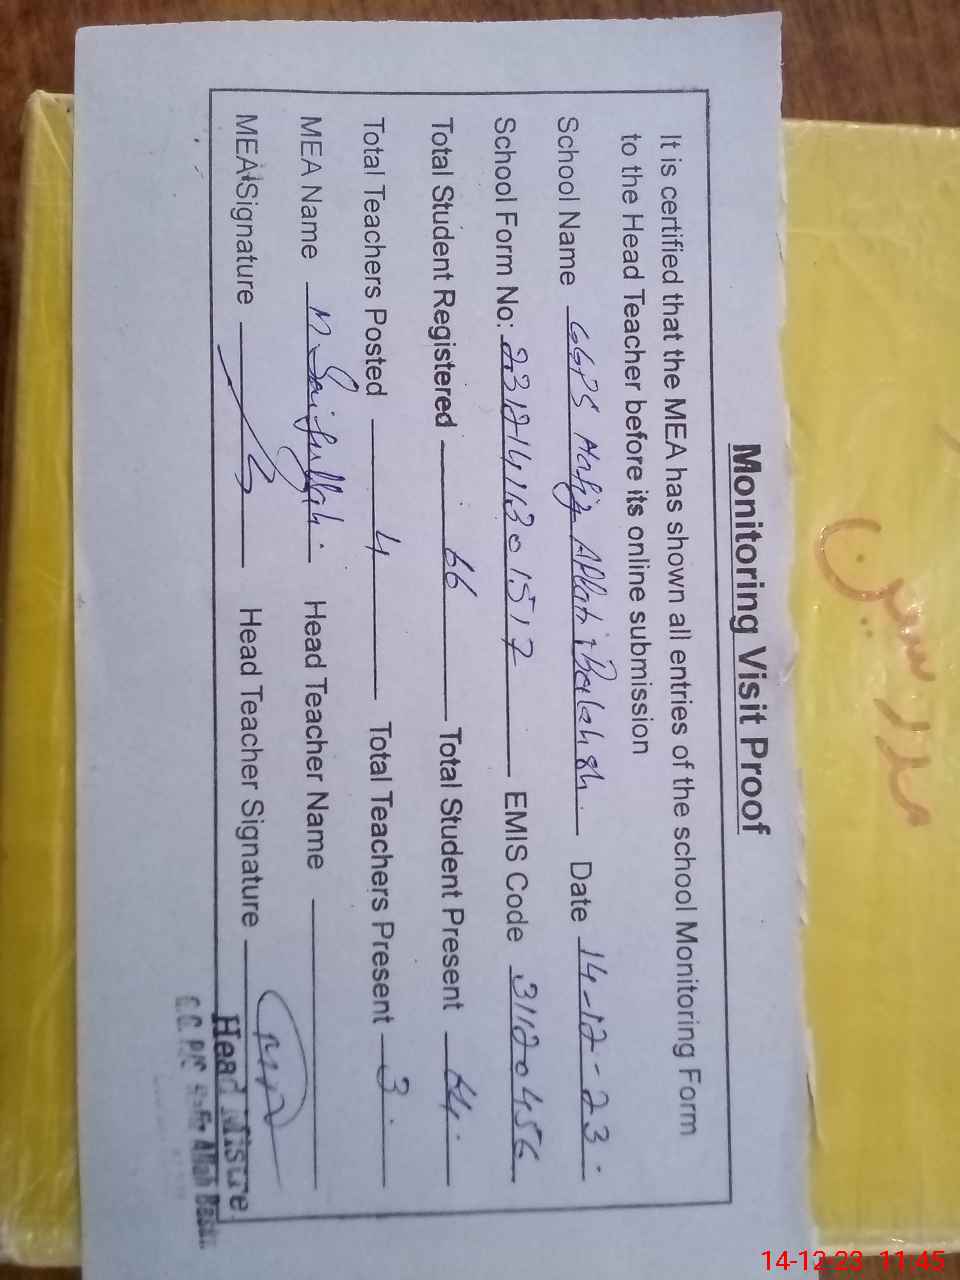 Monitoring Visit Proof
It is certified that the MEA has shown all entries of the school Monitoring Form
to the Head Teacher before its online submission
School Name GGPS Hafiz Allah Bakhsh. Date 14-12-23
School Form No: 2312141301517 EMIS Code 31120456
Total Student Registered 66 Total Student Present 64
Total Teachers Posted 4 Total Teachers Present 3
MEA Name M Saifullah Head Teacher Name
MEA Signature Head Teacher Signature
Head Mistre
G.G. P/S Hafiz Allah Bakh.
مدرسین
14-12-23 11:45